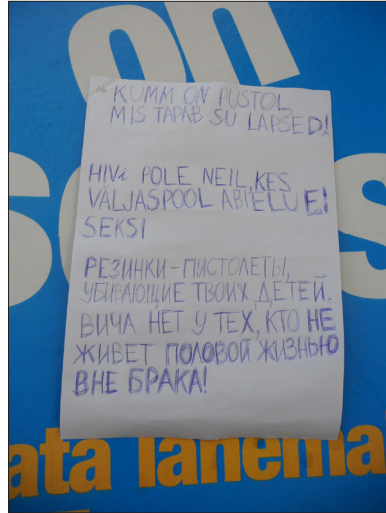 on
KUMM ON PÜSTOL
MIS TAPAB SU LAPSED!
HIVi POLE NEIL, KES
VÄLJASPOOL ABIELU EI
SEKSI
РЕЗИНКИ-ПИСТОЛЕТЫ,
УБИВАЮЩИЕ ТВОИХ ДЕТЕЙ.
ВИЧА НЕТ У ТЕХ, КТО НЕ
ЖИВЕТ ПОЛОВОЙ ЖИЗНЬЮ
ВНЕ БРАКА!